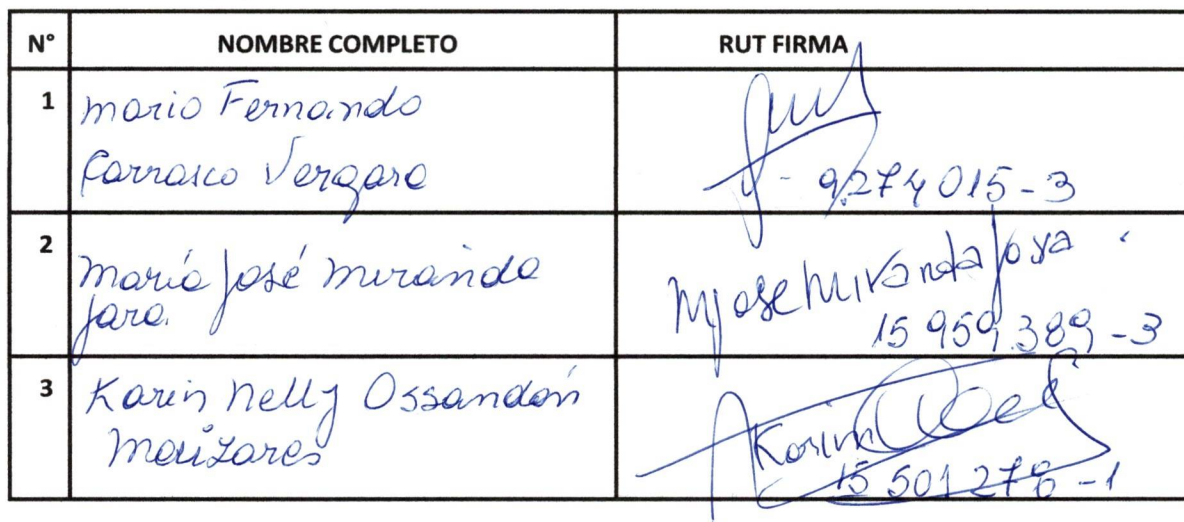 N° NOMBRE COMPLETO RUT FIRMA
1 Mario Fernando
Carrasco Vergara
9.274015-3
2 María José Miranda
Jara.
MJose Miranda Jara
15 959.389-3
3 Karin Nelly Ossandón
Karin
15 501 276-1